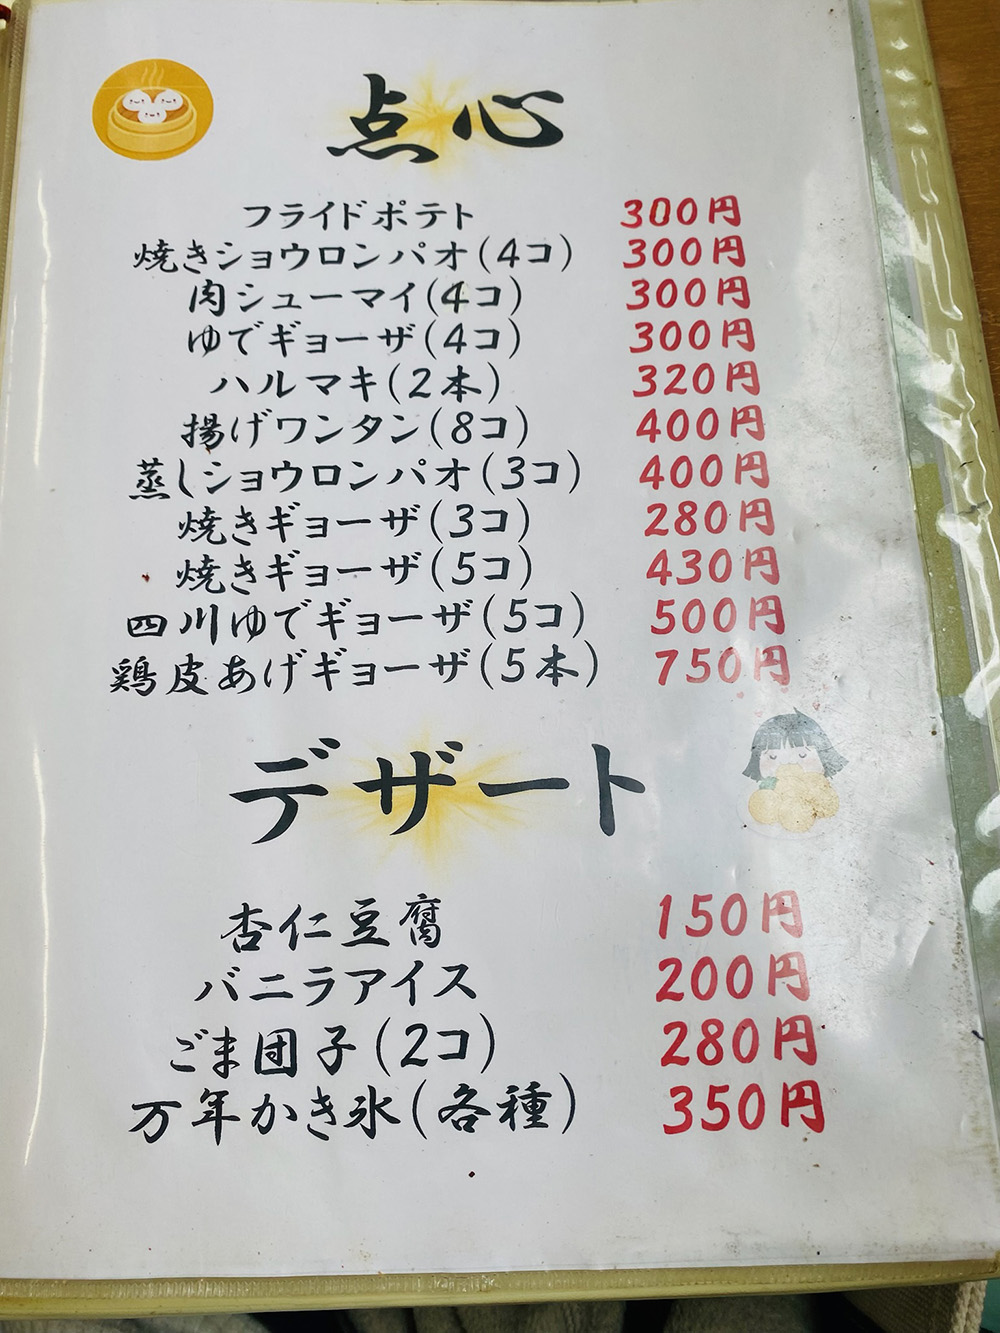 点心
フライドポテト 300円
焼きショウロンパオ(4コ) 300円
肉シューマイ(4コ) 300円
ゆでギョーザ(4コ) 300円
ハルマキ(2本) 320円
揚げワンタン(8コ) 400円
蒸しショウロンパオ(3コ) 400円
焼きギョーザ(3コ) 280円
焼きギョーザ(5コ) 430円
四川ゆでギョーザ(5コ) 500円
鶏皮あげギョーザ(5本) 750円
デザート
杏仁豆腐 150円
バニラアイス 200円
ごま団子(2コ) 280円
万年かき氷(各種) 350円